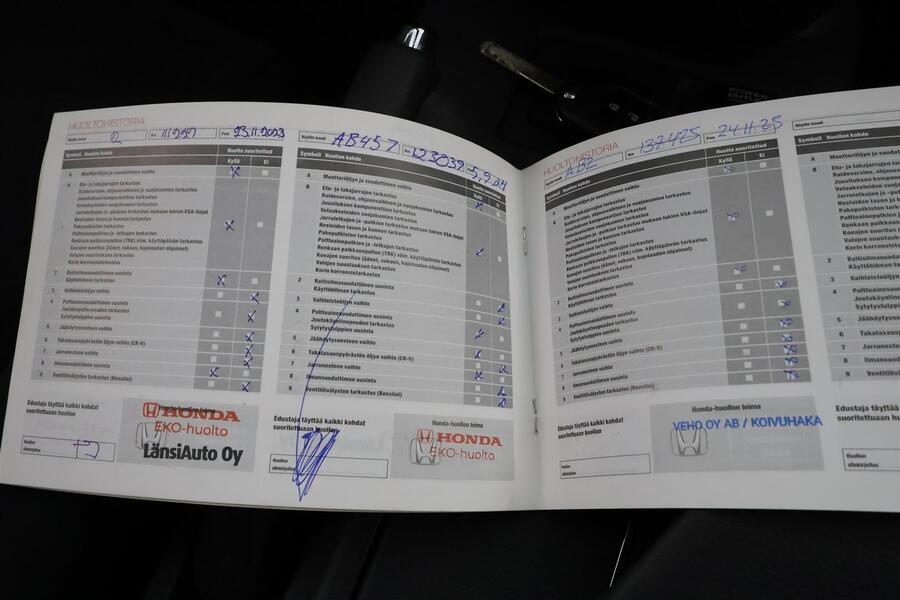 HUOLTOHISTORIA
Näytön koodi 2 Km 111 227 Pvm 23.11.2023
Symboli Huollon kohde Huolto suoritettud
Kyllä Ei
A Moottoriöljyn ja suodattimen vaihto
B Etu- ja takajarrujen tarkastus
Raidetankojen, ohjausvaihteen ja suojakumien tarkastus
Jousituksen komponenttien tarkastus
Vetoakseleiden suojakumien tarkastus
Jarruletkujen ja -putkien tarkastus mukaan lukien VSA-linjat
Nesteiden tason ja kunnon tarkastus
Pakoputkiston tarkastus
Polttoaineputkien ja -letkujen tarkastus
Renkaan paikkauspullon (TRK) viim. käyttöpäivän tarkastus
Koeajon suoritus (äänet, vakaus, kojelaudan ohjaimet)
Valojen suuntauksen tarkastus
Korin korroosiotarkastus
2 Raitisilmasuodattimen uusinta
Käyttöhihnan tarkastus
3 Vaihteistoöljyn vaihto
4 Polttoainesuodattimen uusinta
Joutokäyntinopeuden tarkastus
Sytytystulppien uusinta
5 Jäähdytysnesteen vaihto
6 Takatasauspyörästön öljyn vaihto (CR-V)
7 Jarrunesteen vaihto
8 Ilmansuodattimen uusinta
9 Venttiilivälysten tarkastus (Bensiini)
Edustaja täyttää kaikki kohdat
suoritettuaan huollon
Huollon
allekirjoitus
HONDA
EKO-huolto
LänsiAuto Oy
Näytön koodi AB457 Km 123039 5.9.24
Symboli Huollon kohde
A Moottoriöljyn ja suodattimen vaihto
B Etu- ja takajarrujen tarkastus
Jousituksen komponenttien tarkastus
Vetoakseleiden suojakumien tarkastus
Jarruletkujen ja -putkien tarkastus mukaan lukien VSA-linjat
Nesteiden tason ja kunnon tarkastus
Pakoputkiston tarkastus
Polttoaineputkien ja -letkujen tarkastus
Renkaan paikkauspullon (TRK) viim. käyttöpäivän tarkastus
Koeajon suoritus (äänet, vakaus, kojelaudan ohjaimet)
Valojen suuntauksen tarkastus
Korin korroosiotarkastus
2 Raitisilmasuodattimen uusinta
Käyttöhihnan tarkastus
3 Vaihteistoöljyn vaihto
4 Polttoainesuodattimen uusinta
Joutokäyntinopeuden tarkastus
Sytytystulppien uusinta
5 Jäähdytysnesteen vaihto
6 Takatasauspyörästön öljyn vaihto (CR-V)
7 Jarrunesteen vaihto
8 Ilmansuodattimen uusinta
9 Venttiilivälysten tarkastus (Bensiini)
Edustaja täyttää kaikki kohdat
suoritettuaan huollon
Huollon
allekirjoitus
Honda-huollon leima
HONDA
EKO-huolto
HUOLTOHISTORIA
Km 137425 Pvm 24.11.25
Symboli Huollon kohde Huolto suoritettud
Kyllä Ei
A Moottoriöljyn ja suodattimen vaihto
B Etu- ja takajarrujen tarkastus
Jousituksen komponenttien tarkastus
Vetoakseleiden suojakumien tarkastus
Jarruletkujen ja -putkien tarkastus mukaan lukien VSA-linjat
Nesteiden tason ja kunnon tarkastus
Pakoputkiston tarkastus
Polttoaineputkien ja -letkujen tarkastus
Renkaan paikkauspullon (TRK) viim. käyttöpäivän tarkastus
Koeajon suoritus (äänet, vakaus, kojelaudan ohjaimet)
Valojen suuntauksen tarkastus
Korin korroosiotarkastus
2 Raitisilmasuodattimen uusinta
Käyttöhihnan tarkastus
3 Vaihteistoöljyn vaihto
4 Polttoainesuodattimen uusinta
Joutokäyntinopeuden tarkastus
Sytytystulppien uusinta
5 Jäähdytysnesteen vaihto
6 Takatasauspyörästön öljyn vaihto (CR-V)
7 Jarrunesteen vaihto
8 Ilmansuodattimen uusinta
9 Venttiilivälysten tarkastus (Bensiini)
Edustaja täyttää kaikki kohdat
suoritettuaan huollon
Huollon
allekirjoitus
Honda-huollon leima
VEHO OY AB / KOIVUHAKA
Näytön koodi
Symboli Huollon kohde
Edustaja täyttää kaikki
suoritettuaan huollon
Huollon
allekirjoitus